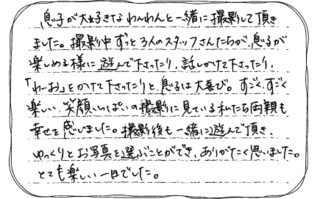 息子が大好きなわんわんと一緒に撮影して頂き
ました。撮影中ずっと3人のスタッフさんたちが、息子が
楽しめる様に遊んで下さったり、話しかけて下さったり、
「わーお」をかけて下さったりと息子は大喜び。すごく、すごく
楽しい、笑顔いっぱいの撮影に見ている私たち両親も
幸せを感じました。撮影後も一緒に遊んで頂き、
ゆっくりとお写真を選ぶことができ、ありがたく思いました。
とても楽しい一日でした。